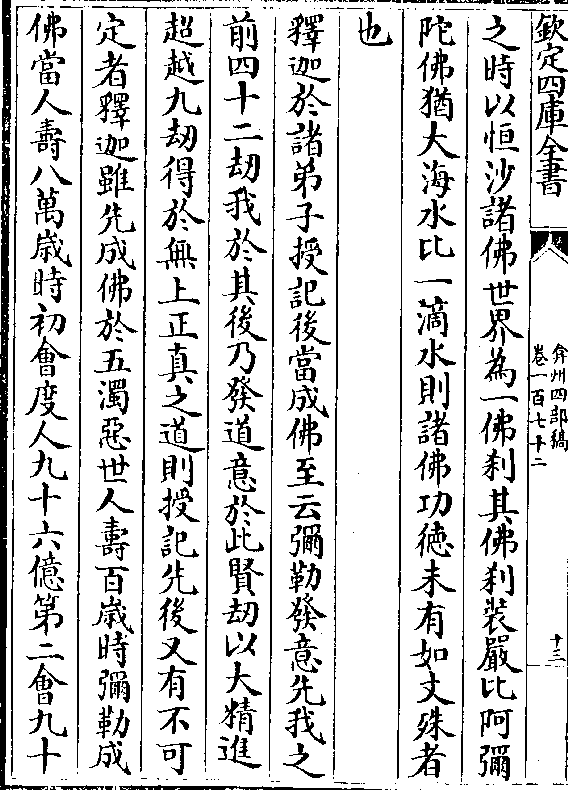 欽定四庫全書
弇州四部稿
卷一百七十二
十三
之時以恒沙諸佛世界為一佛刹其佛刹裝嚴比阿彌
陀佛猶大海水比一滴水則諸佛功徳未有如文殊者
也
釋迦於諸弟子授記後當成佛至云彌勒發意先我之
前四十二刼我於其後乃發道意於此賢刼以大精進
超越九刼得於無上正真之道則授記先後又有不可
定者釋迦雖先成佛於五濁惡世人壽百歳時彌勒成
佛當人壽八萬歳時初會度人九十六億第二會九十